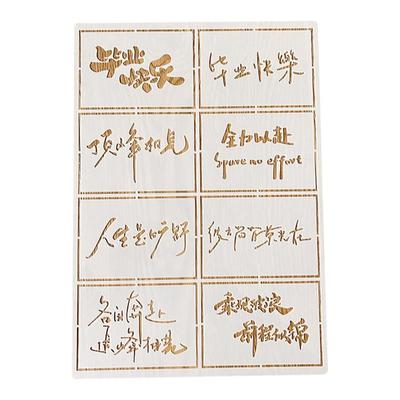 毕业
快乐
毕业快樂
顶峰相見
全力以赴
Spare no effort
人生是旷野
彼方尚有荣光在
各自奔赴
峰相見
乘风破浪
前程似锦